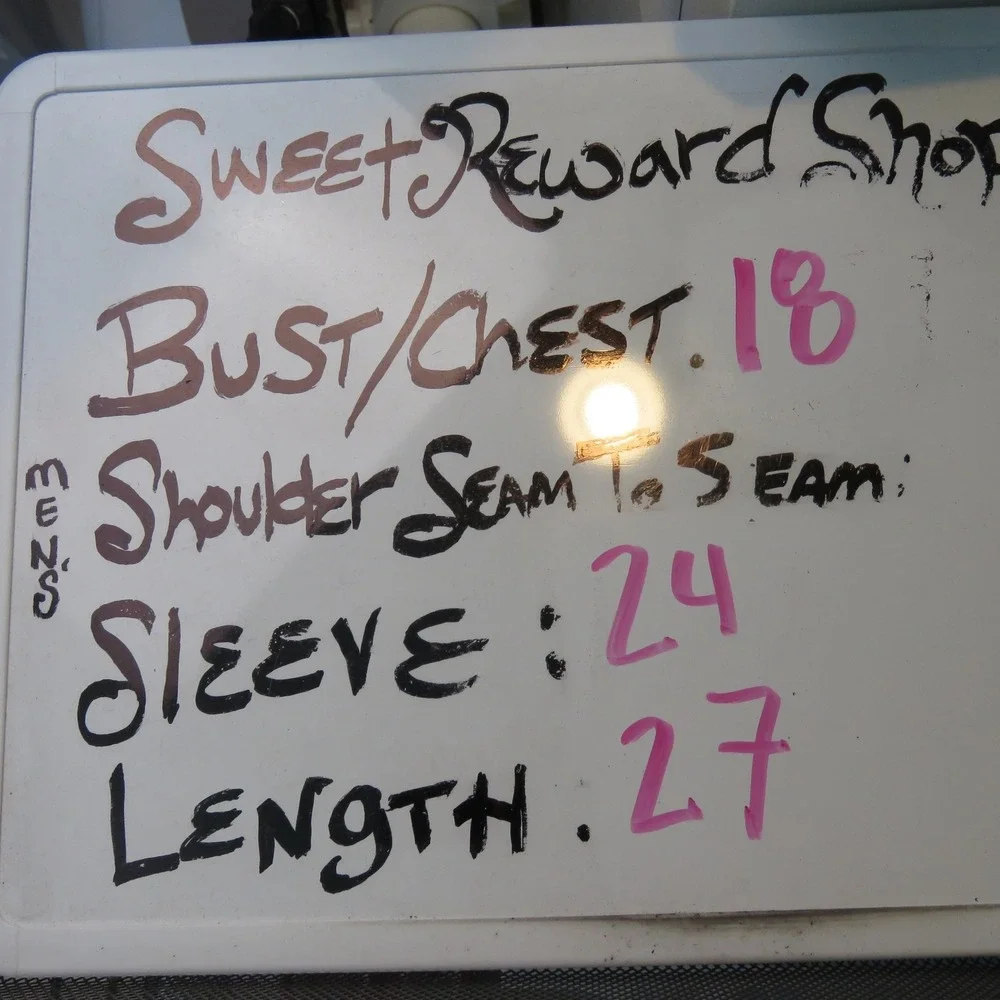 Sweet Reward Shop
Bust/Chest. 18
Shoulder Seam To Seam:
Sleeve: 24
Length. 27
MEN'S